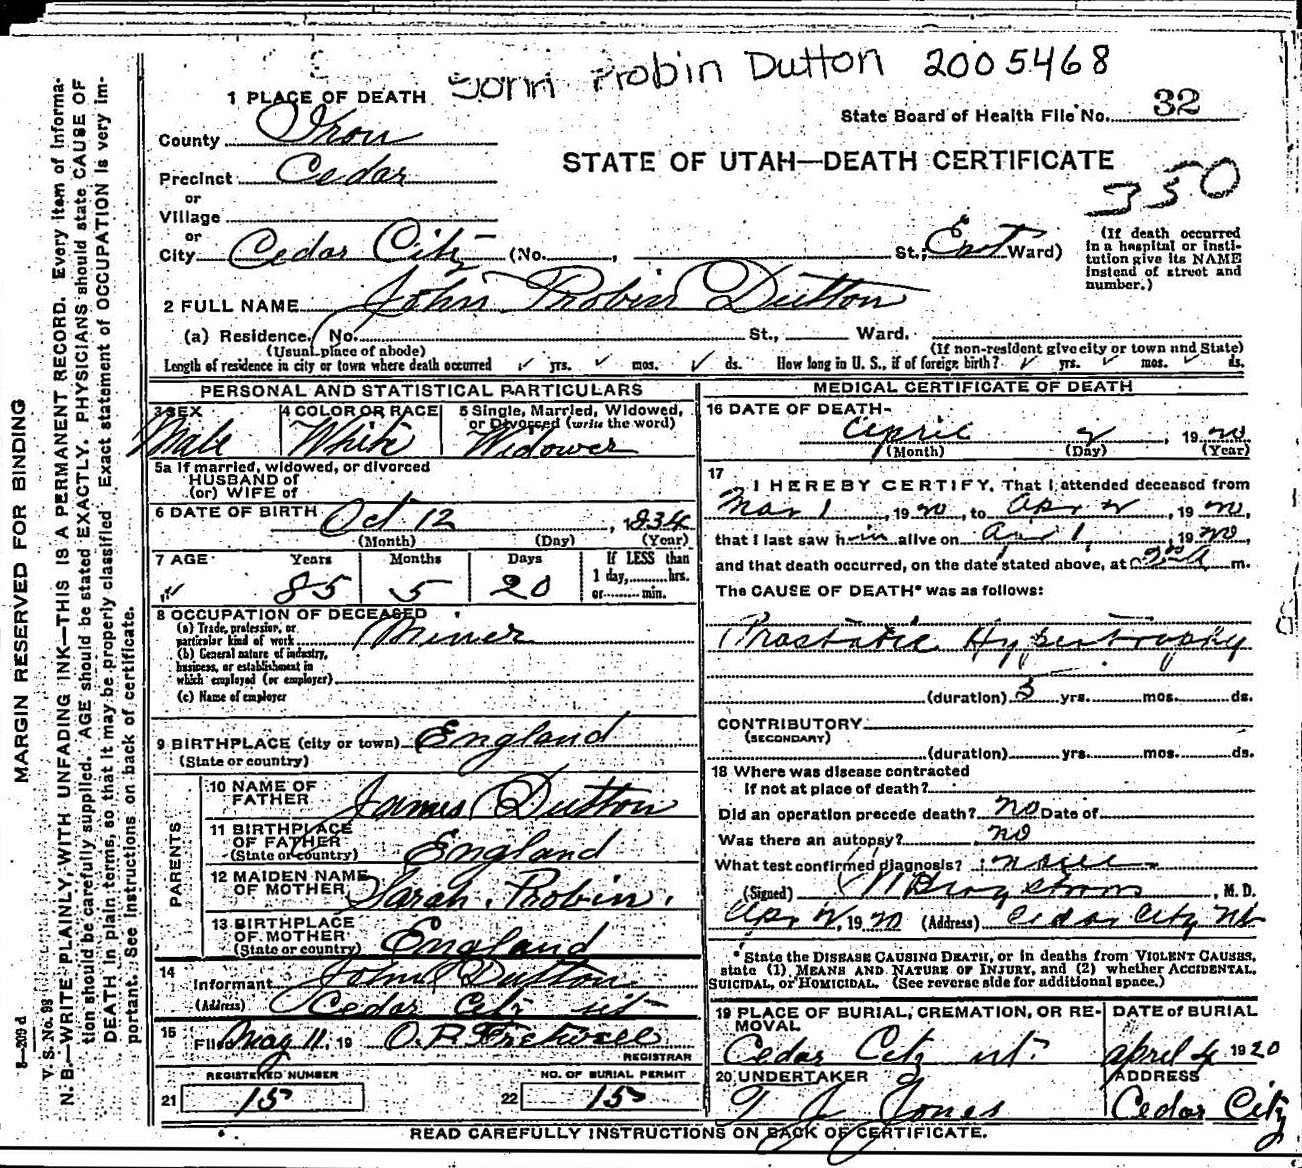 John Probin Dutton 2005468
1 PLACE OF DEATH
State Board of Health File No. 32
County Iron
STATE OF UTAH—DEATH CERTIFICATE
Precinct Cedar
350
or
Village
or
City Cedar City (No. , St.; East Ward)
(If death occurred
in a hospital or insti-
tution give its NAME
instead of street and
number.)
2 FULL NAME John Probin Dutton
(a) Residence. No. St., Ward.
(Usual place of abode) (If non-resident give city or town and State)
Length of residence in city or town where death occurred yrs. mos. ds. How long in U. S., if of foreign birth? yrs. mos. ds.
PERSONAL AND STATISTICAL PARTICULARS
3 SEX 4 COLOR OR RACE 5 Single, Married, Widowed,
or Divorced (write the word)
Male White Widower
5a If married, widowed, or divorced
HUSBAND of
(or) WIFE of
6 DATE OF BIRTH Oct 12, 1834
(Month) (Day) (Year)
7 AGE Years Months Days If LESS than
1 day, hrs.
or min.
85 5 20
8 OCCUPATION OF DECEASED
(a) Trade, profession, or
particular kind of work Miner
(b) General nature of industry,
business, or establishment in
which employed (or employer)
(c) Name of employer
9 BIRTHPLACE (city or town) England
(State or country)
PARENTS
10 NAME OF
FATHER James Dutton
11 BIRTHPLACE
OF FATHER
(State or country) England
12 MAIDEN NAME
OF MOTHER Sarah Probin.
13 BIRTHPLACE
OF MOTHER
(State or country) England
14
Informant John Dutton
(Address) Cedar City ut
15 Filed May 11, 19 O. P. Fretwell
REGISTRAR
REGISTERED NUMBER NO. OF BURIAL PERMIT
21 15 22 15
MEDICAL CERTIFICATE OF DEATH
16 DATE OF DEATH-
April 2, 1920
(Month) (Day) (Year)
17
I HEREBY CERTIFY, That I attended deceased from
Mar 1, 1920, to Apr 2, 1920,
that I last saw him alive on Apr 1, 1920,
and that death occurred, on the date stated above, at m.
The CAUSE OF DEATH* was as follows:
Prostatic Hypertrophy
(duration) 5 yrs. mos. ds.
CONTRIBUTORY
(SECONDARY)
(duration) yrs. mos. ds.
18 Where was disease contracted
if not at place of death?
Did an operation precede death? no Date of
Was there an autopsy? no
What test confirmed diagnosis? none
(Signed) , M. D.
Apr 2, 1920 (Address) Cedar City Ut
* State the DISEASE CAUSING DEATH, or in deaths from VIOLENT CAUSES,
state (1) MEANS AND NATURE OF INJURY, and (2) whether ACCIDENTAL,
SUICIDAL, or HOMICIDAL. (See reverse side for additional space.)
19 PLACE OF BURIAL, CREMATION, OR RE-
MOVAL
DATE OF BURIAL
Cedar City ut. April 4 1920
20 UNDERTAKER ADDRESS
T J Jones Cedar City
READ CAREFULLY INSTRUCTIONS ON BACK OF CERTIFICATE.
MARGIN RESERVED FOR BINDING
8—209 d
V. S. No. 98
N. B.—WRITE PLAINLY, WITH UNFADING INK—THIS IS A PERMANENT RECORD. Every item of informa-
tion should be carefully supplied. AGE should be stated EXACTLY. PHYSICIANS should state CAUSE OF
DEATH in plain terms, so that it may be properly classified. Exact statement of OCCUPATION is very im-
portant. See instructions on back of certificate.